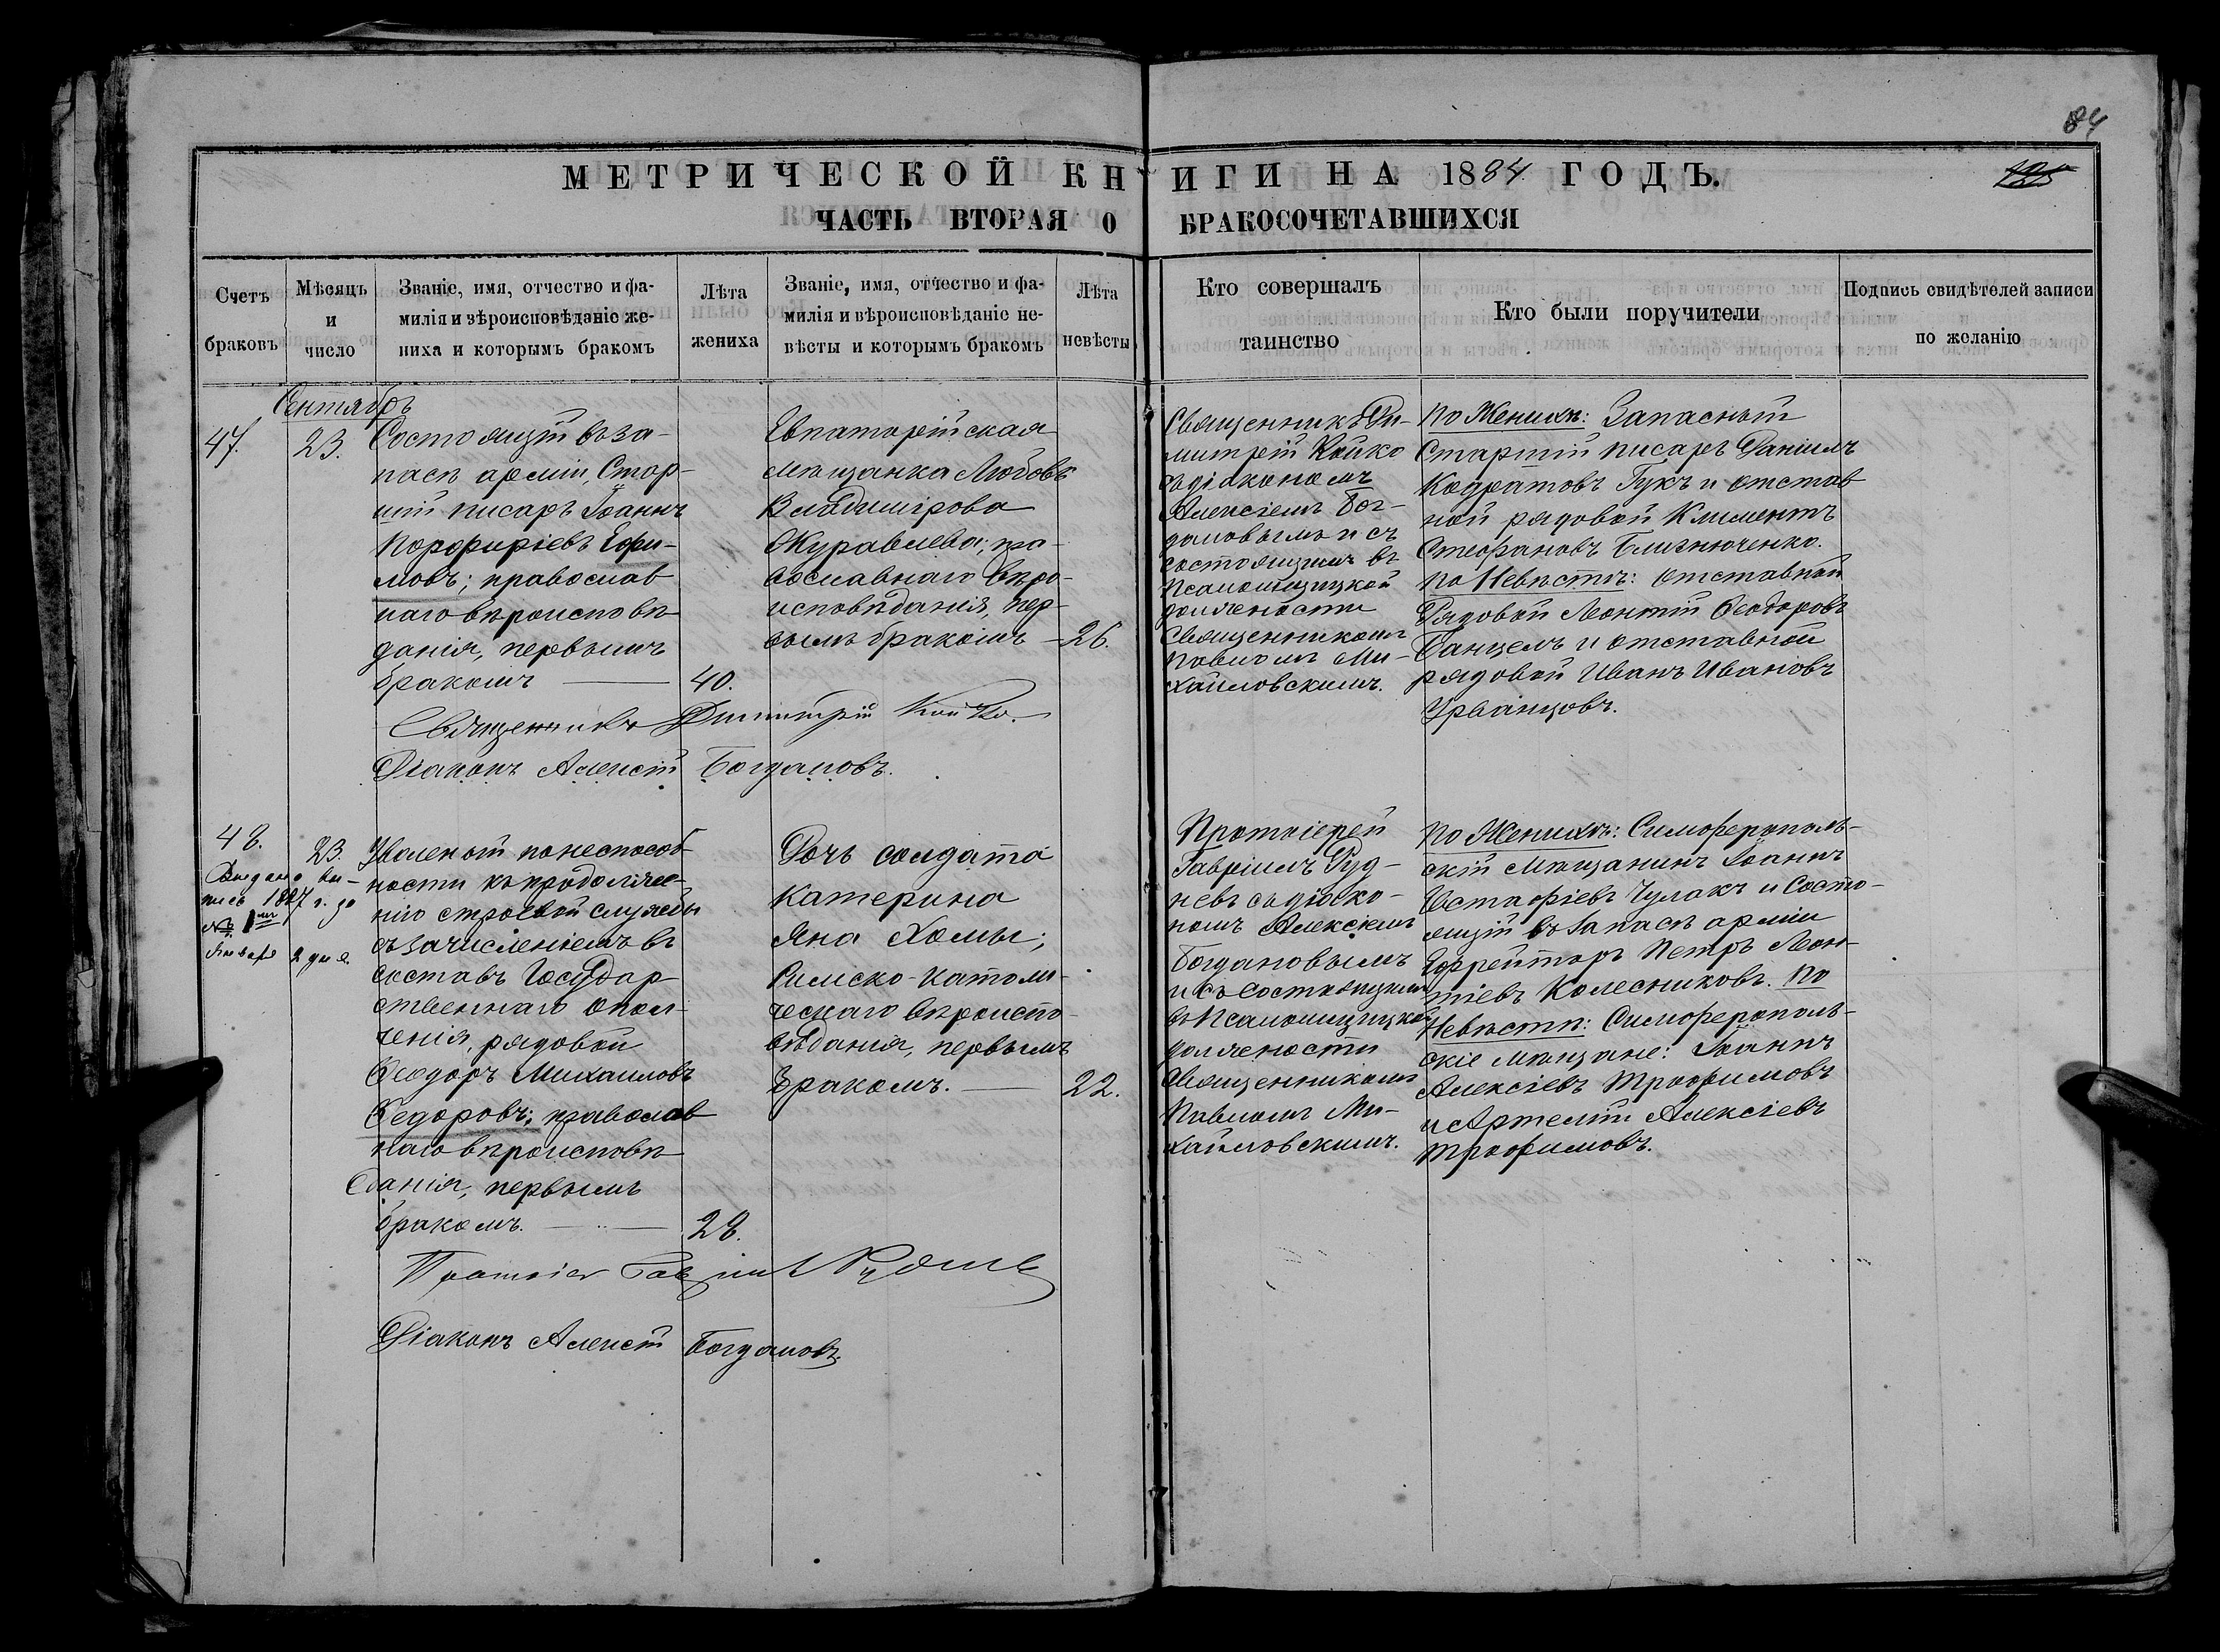 84
МЕТРИЧЕСКОЙ КНИГИ НА 1884 ГОДЪ.
ЧАСТЬ ВТОРАЯ О БРАКОСОЧЕТАВШИХСЯ
Счетъ браковъ
Мѣсяцъ и число
Званіе, имя, отчество и фа-
милія и вѣроисповѣданіе же-
ниха и которымъ бракомъ
Лѣта жениха
Званіе, имя, отчество и фа-
милія и вѣроисповѣданіе не-
вѣсты и которымъ бракомъ
Лѣта невѣсты
Кто совершалъ
таинство
Кто были поручители
Подпись свидѣтелей записи
по желанію
Сентябрь
47.
23.
Состоящій въ за-
пасѣ арміи, Стар-
шій писарь Іоаннъ
Порфиріевъ Ефи-
мовъ; православ
наго вѣроисповѣ
данія, первымъ
бракомъ — 40.
Евпаторійская
мѣщанка Любовь
Владимірова
Журавлева; пра-
вославнаго вѣро-
исповѣданія, пер-
вымъ бракомъ — 26.
Священникъ Ди-
митрій Койко
съ діакономъ
Алексіемъ Бог-
дановымъ и съ
состоящимъ въ
Псаломщицкой
должености
Священникомъ
Павломъ Ми-
хайловскимъ.
По Женихѣ: Запасный
Старшій писарь Даніилъ
Кодратовъ Гукъ и отстав
ной рядовой Климентъ
Стефановъ Близнюченко.
По Невѣстѣ: отставной
Рядовой Леонтій Ѳеодоровъ
Банцелъ и отставной
рядовой Иванъ Ивановъ
Урванцовъ.
Священникъ Димитрій Койко.
Діаконъ Алексій Богдановъ.
48.
23.
Выдана вы-
пись 1887 г. за
№ 1мъ
Января 2 дня.
Уволеный по неспособ-
ности къ продолже-
нію строевой службы
съ зачисленіемъ въ
составъ Государ-
ственнаго Опол-
ченія, рядовой
Ѳеодоръ Михаиловъ
Ѳедоровъ; православ
наго вѣроисповѣ
данія, первымъ
бракомъ. — 28.
Дочь солдата
Катерина
Яна Хомы;
Римско-католи-
ческаго вѣроиспо-
вѣданія, первымъ
бракомъ. — 22.
Протоіерей
Гавріилъ Руд-
невъ съ діако-
номъ Алексіемъ
Богдановымъ
и съ состоящимъ
въ Псаломщицкой
должености
Священникомъ
Павломъ Ми-
хайловскимъ.
По Женихѣ: Симферополь-
скій мѣщанинъ Іоаннъ
Естафіевъ Чулакъ и Состо-
ящій въ запасѣ арміи
Ефрейторъ Петръ Леон-
тіевъ Колесниковъ. По
Невѣстѣ: Симферополь-
скіе мѣщане: Іоаннъ
Алексіевъ Трофимовъ
и Артемій Алексіевъ
Трофимовъ.
Протоіер Гавріилъ Рудневъ
Діаконъ Алексій Богдановъ.